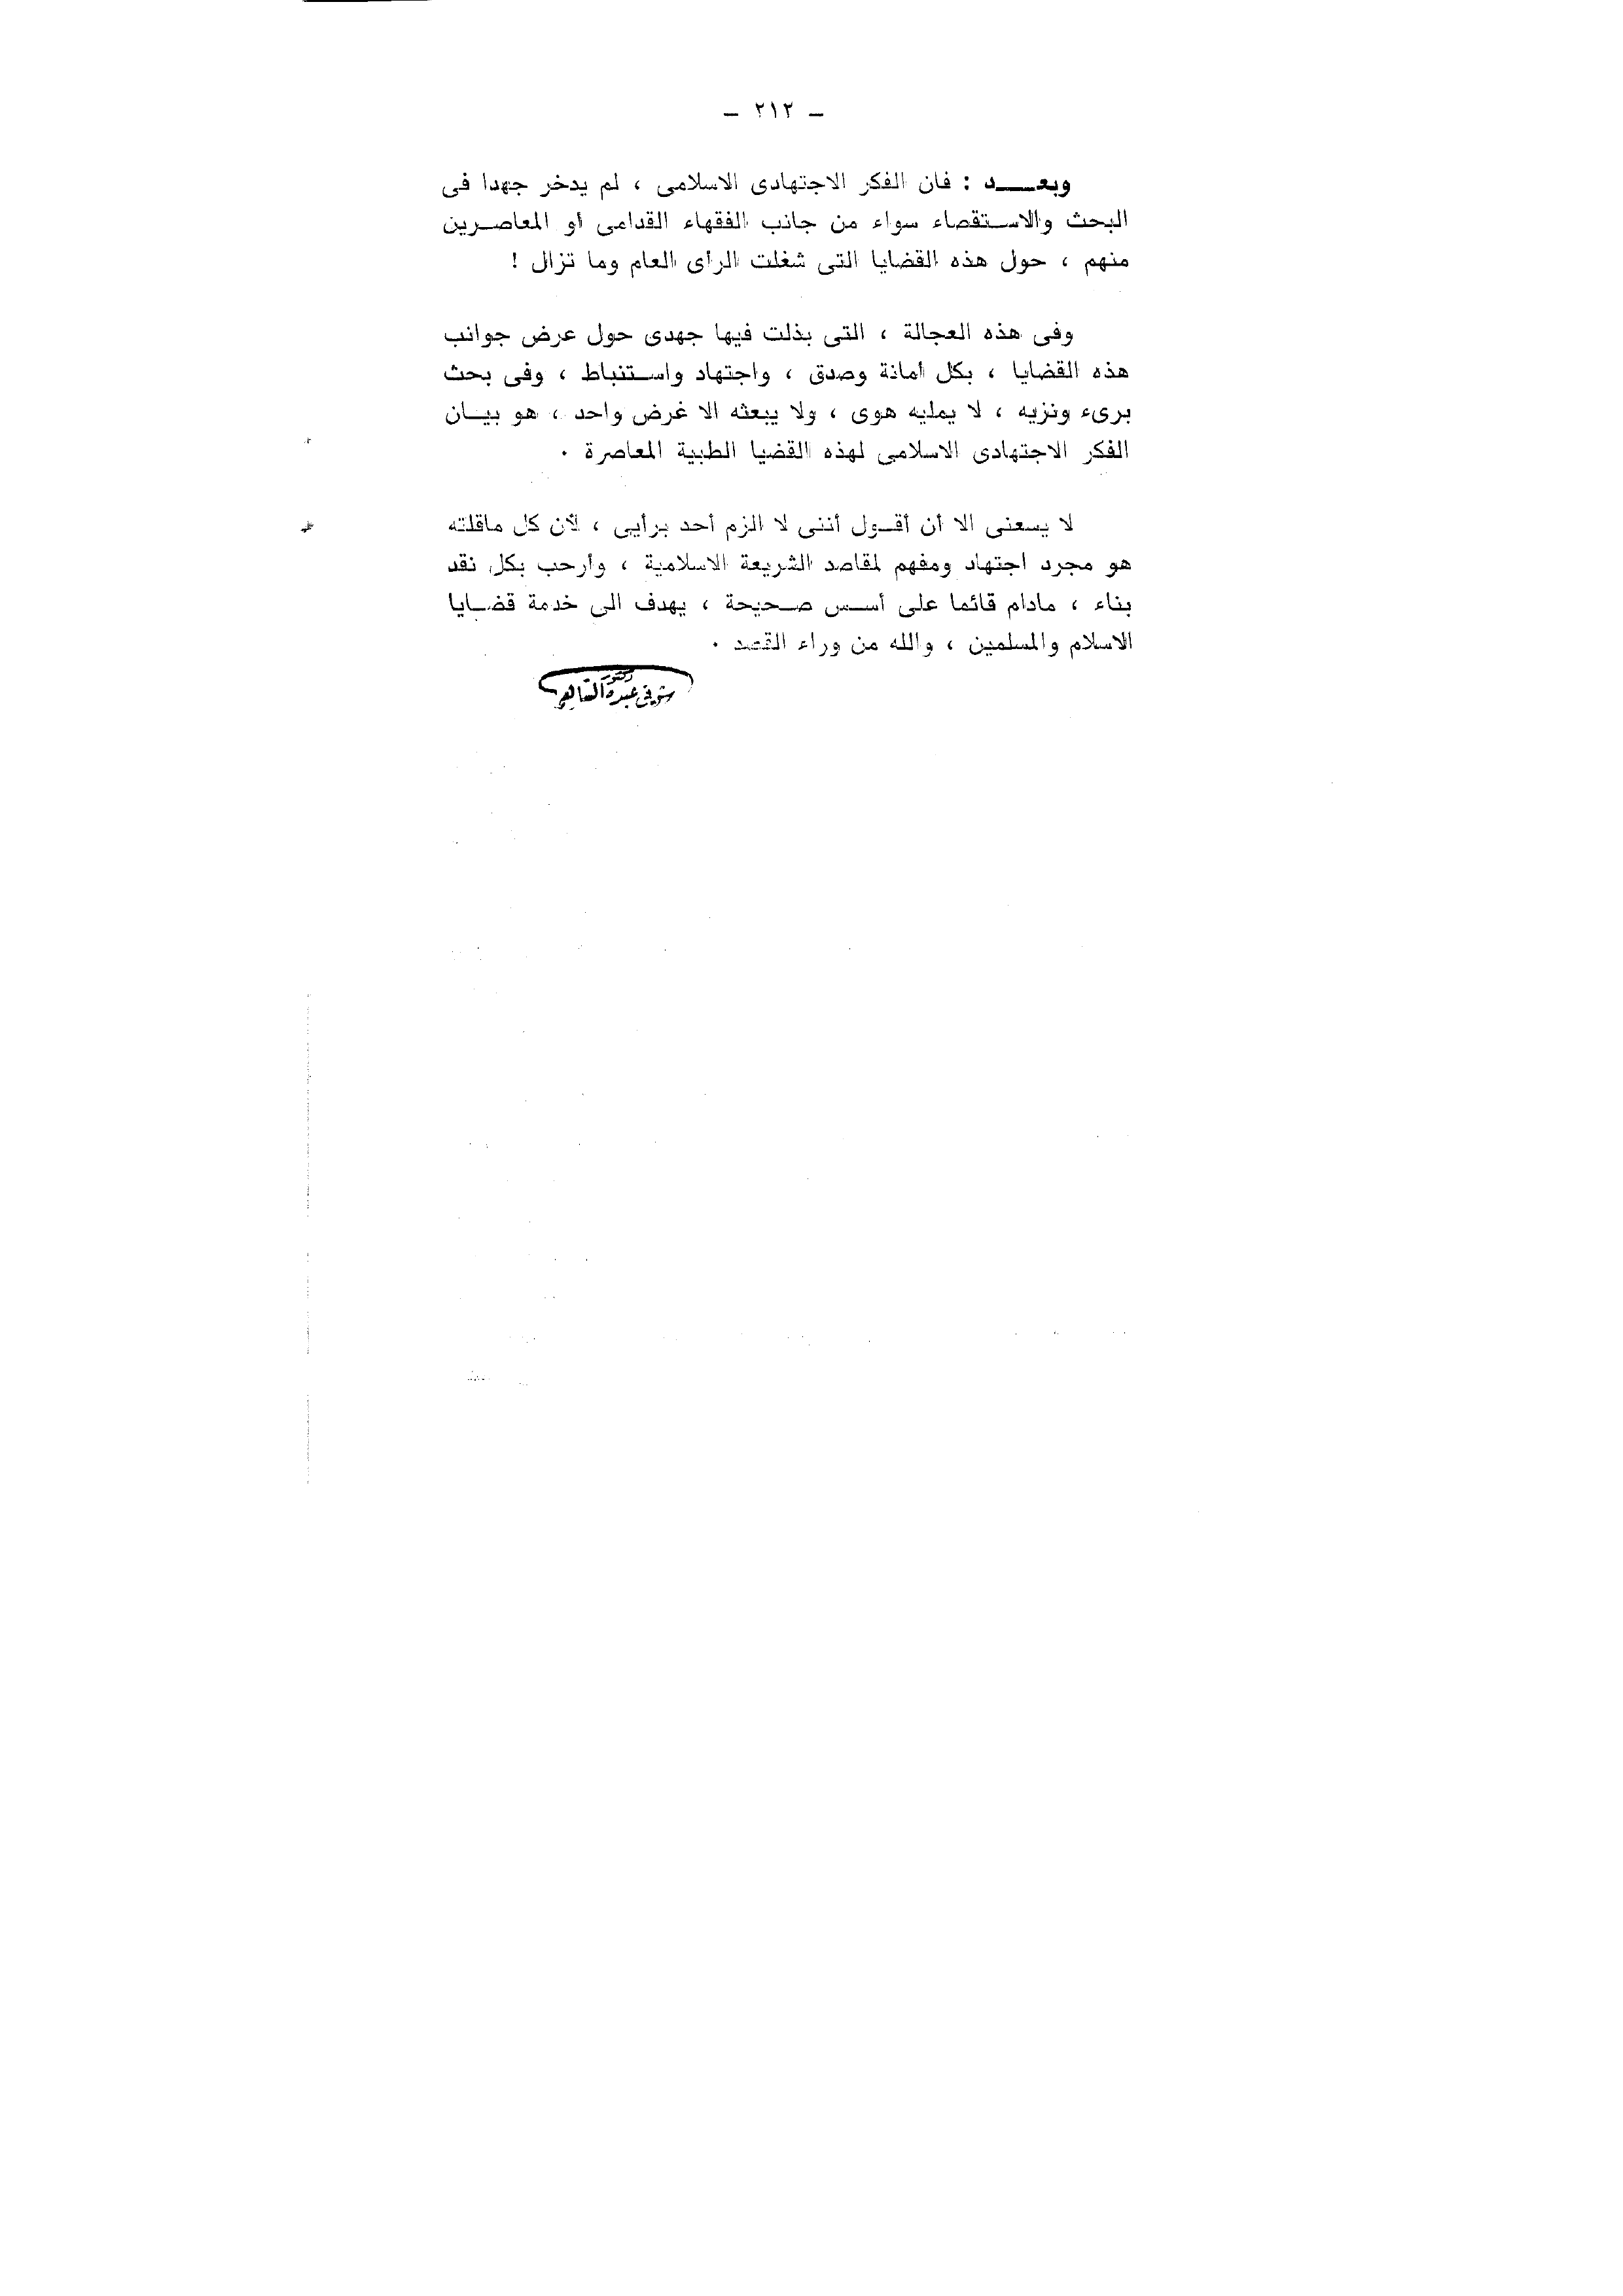 – ٢١٢ –
وبعــــد : فان الفكر الاجتهادى الاسلامى ، لم يدخر جهدا فى
البحث والاســتقصاء سواء من جانب الفقهاء القدامى أو المعاصــرين
منهم ، حول هذه القضايا التى شغلت الرأى العام وما تزال !
وفى هذه العجالة ، التى بذلت فيها جهدى حول عرض جوانب
هذه القضايا ، بكل أمانة وصدق ، واجتهاد واســتنباط ، وفى بحث
برىء ونزيه ، لا يمليه هوى ، ولا يبعثه الا غرض واحد ، هو بيــان
الفكر الاجتهادى الاسلامى لهذه القضيا الطبية المعاصرة ٠
لا يسعنى الا أن أقــول أننى لا الزم أحد برأيى ، لأن كل ماقلته
هو مجرد اجتهاد ومفهم لمقاصد الشريعة الاسلامية ، وأرحب بكل نقد
بناء ، مادام قائما على أســس صــحيحة ، يهدف الى خدمة قضــايا
الاسلام والمسلمين ، والله من وراء القصد ٠
دكتور
شوقى عبده الساهى